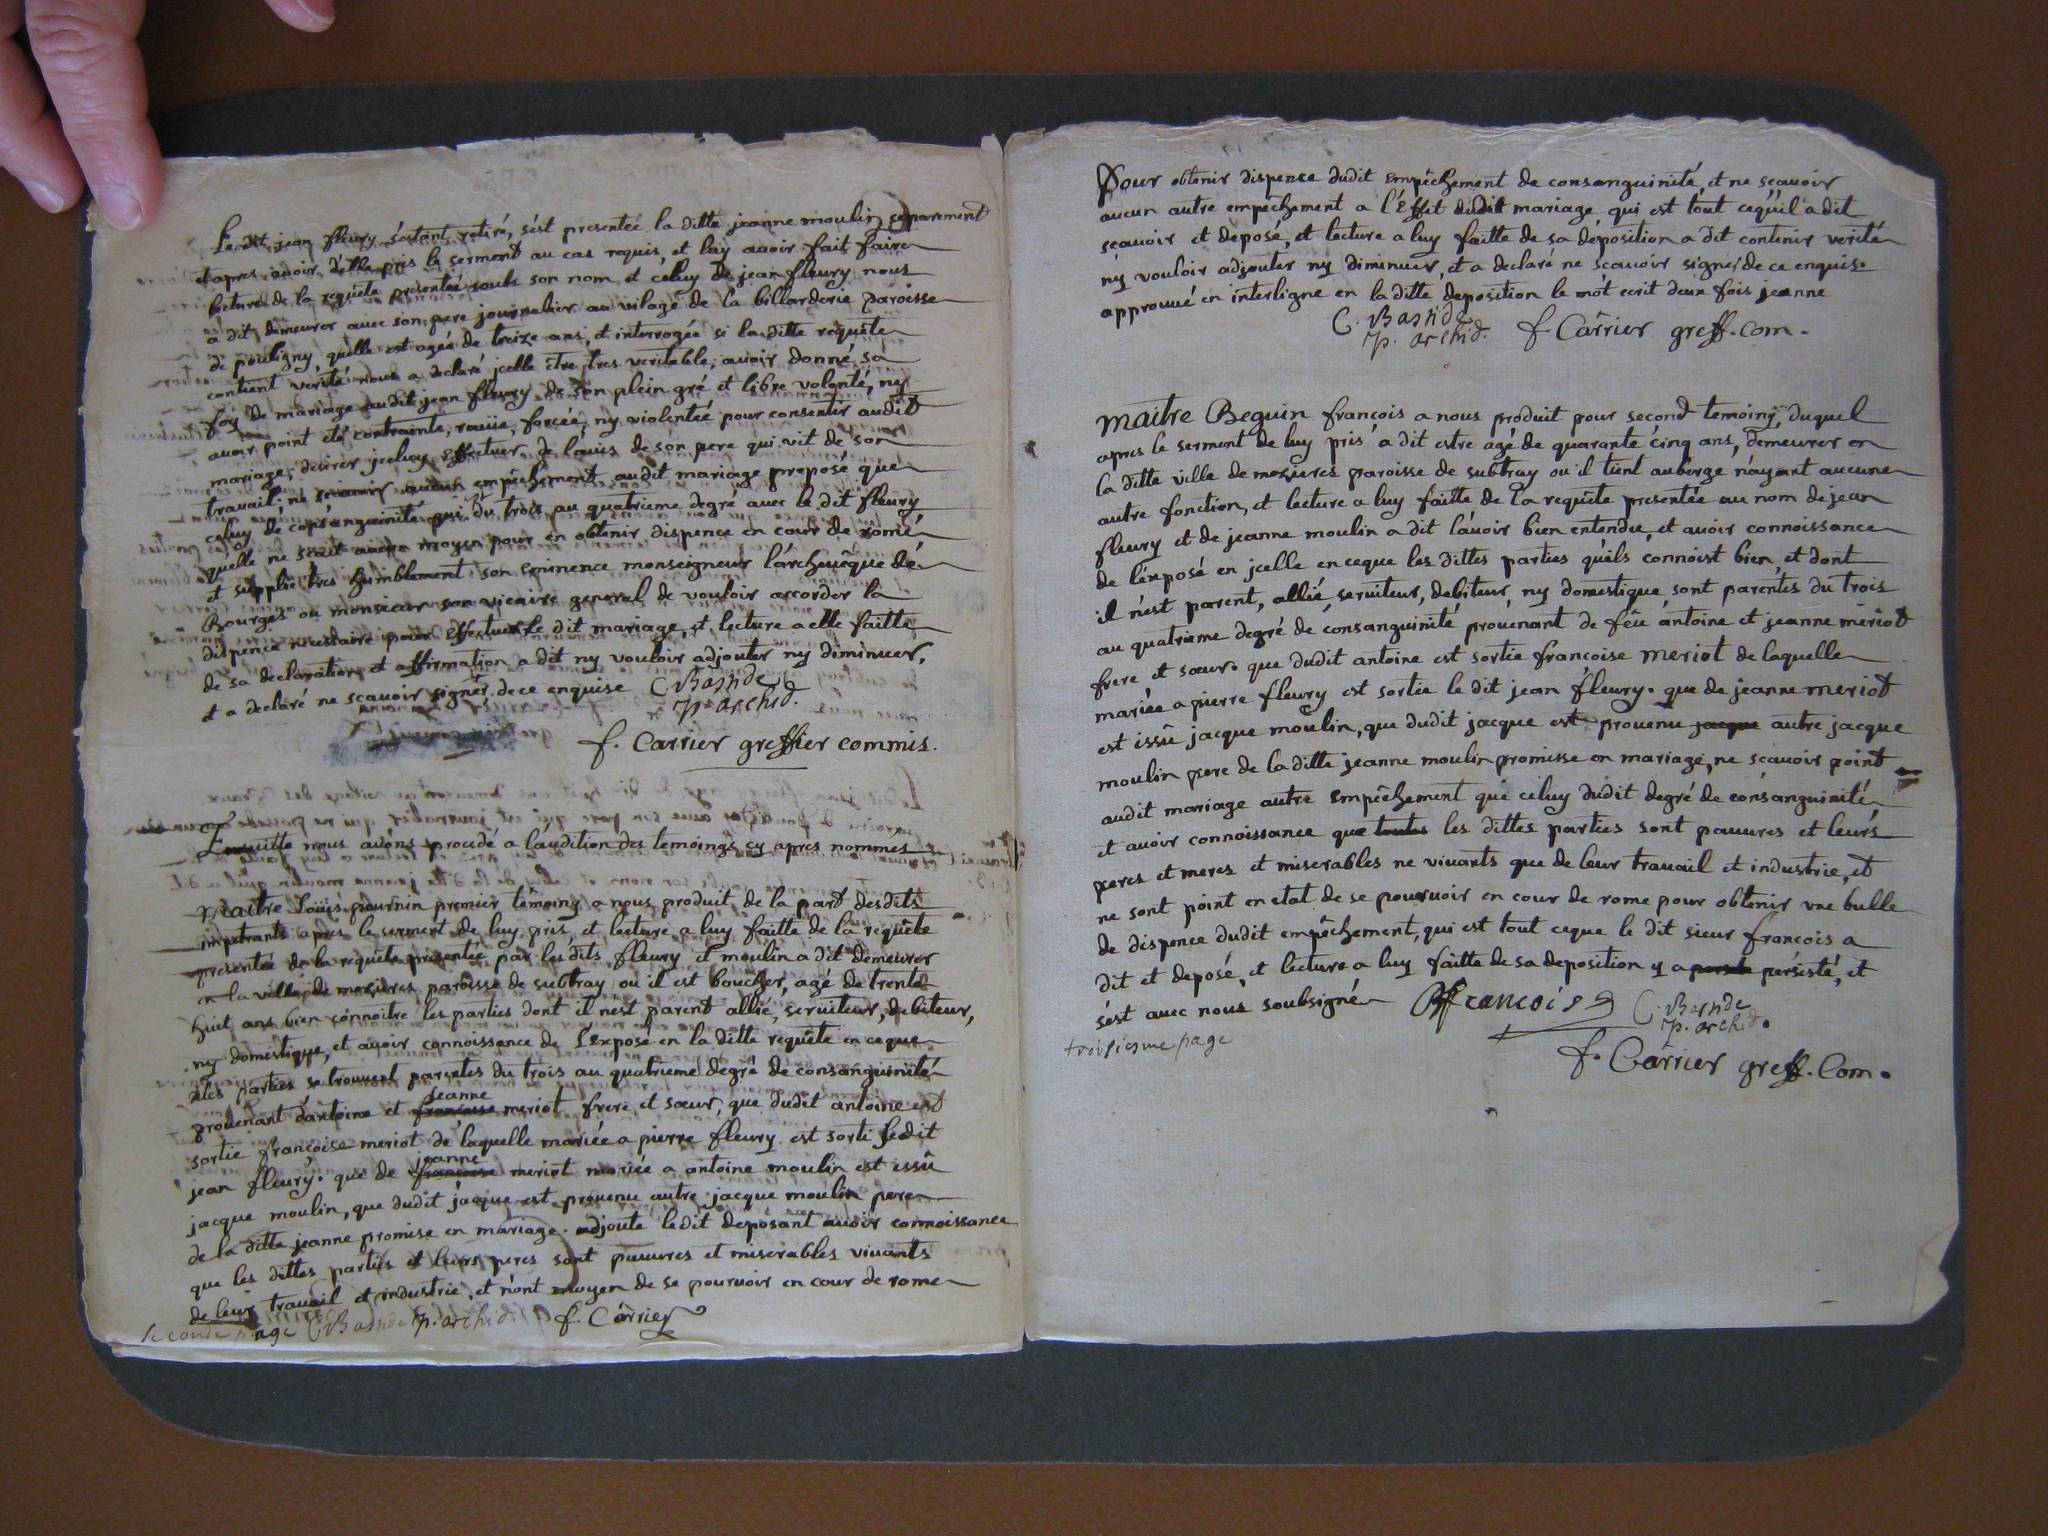 Le dit jean fleury s'estant retiré, s'est presentée la ditte jeanne moulin separement
et apres avoir d'elle pris le serment au cas requis, et luy avoir fait faire
lecture de la requête presentée soubs son nom, et celuy de jean fleury nous
a dit demeurer avec son pere journalier au vilage de la billarderie paroisse
de pouligny, quelle est agée de treize ans, et interrogée si la ditte requête
contient verité nous a declaré jcelle être tres veritable, avoir donné sa
foy de mariage audit jean fleury de son plein gré et libre volonté, ny
avoir point été contrainte, ravie, forcée, ny violentée pour consentir audit
mariage, desirer jceluy effectuer de l'avis de son pere qui vit de son
travail, ne scavoir aucun empêchement audit mariage proposé que
celuy de consanguinité qui du trois au quatrieme degré avec le dit fleury
quelle ne scait aucun moyen pour en obtenir dispence en cour de rome
et supplie tres humblement son eminence monseigneur l'archevêque de
Bourges ou monsieur son vicaire general de vouloir accorder la
dispence necessaire pour effectuer le dit mariage, et lecture a elle faitte
de sa declaration et affirmation a dit ny vouloir adjouter ny diminuer,
et a declaré ne scavoir signer de ce enquise C. Bastide
p. archid.
f. Carrier greffier commis.
Ensuitte nous avons procedé a l'audition des temoings cy apres nommés
Maitre Loüis pournin premier têmoing a nous produit de la part desdits
impetrants apres le serment de luy pris, et lecture a luy faitte de la requête
presentée de la requête presentée par lesdits fleury et moulin a dit demeurer
en la ville de mezieres paroisse de subtray ou il est boucher, agé de trente
huit ans bien connoitre les parties dont il n'est parent allié, serviteur, debiteur,
ny domestique, et avoir connoissance de l'exposé en la ditte requête en ceque
les parties se trouvent parentes du trois au quatrieme degré de consanguinité
jeanne
provenant d'antoine et francoise meriot frere et sœur, que dudit antoine est
sortie francoise meriot de laquelle mariée a pierre fleury est sorti ledit
jeanne
jean fleury. que de francoise meriot mariée a antoine moulin est issû
jacque moulin, que dudit jacque est provenu autre jacque moulin pere
de la ditte jeanne promise en mariage. adjoute ledit deposant avoir connoissance
que les dittes parties et leurs peres sont pauvres et miserables vivants
de leur travail et industrie, et n'ont moyen de se pourvoir en cour de rome
seconde page C. Bastide p. archid. f. Carrier
Pour obtenir dispence dudit empêchement de consanguinité, et ne scavoir
aucun autre empêchement a l'effet dudit mariage qui est tout cequ'il a dit
scavoir et deposé, et lecture a luy faitte de sa deposition a dit contenir verité
ny vouloir adjouter ny diminuer, et a declaré ne scavoir signer de ce enquis.
approuvé en interligne en la ditte deposition le mot ecrit deux fois jeanne
C. Bastide
p. archid. f. Carrier greff. com.
Maitre Beguin francois a nous produit pour second temoing, duquel
apres le serment de luy pris a dit estre agé de quarante cinq ans, demeurer en
la ditte ville de mezieres paroisse de subtray ou il tient auberge n'ayant aucune
autre fonction, et lecture a luy faitte de la requête presentée au nom de jean
fleury et de jeanne moulin a dit l'avoir bien entendue, et avoir connoissance
de l'exposé en jcelle en ceque les dittes parties qu'ils connoist bien, et dont
il n'est parent, allié, serviteur, debiteur, ny domestique sont parentes du trois
au quatrieme degré de consanguinité provenant de feu antoine et jeanne meriot
frere et sœur. que dudit antoine est sortie francoise meriot de laquelle
mariée a pierre fleury est sortie le dit jean fleury. que de jeanne meriot
est issû jacque moulin, que dudit jacque est provenu jacque autre jacque
moulin pere de la ditte jeanne moulin promisse en mariage, ne scavoir point
audit mariage autre empêchement que celuy dudit degré de consanguinité
et avoir connoissance que toutes les dittes parties sont pauvres et leurs
peres et meres et miserables ne vivants que de leur travail et industrie, et
ne sont point en etat de se pourvoir en cour de rome pour obtenir vne bulle
de dispence dudit empêchement, qui est tout ceque le dit sieur francois a
dit et deposé, et lecture a luy faitte de sa deposition y a persisté, et
s'est avec nous soubsigné Bfrancois C. Bastide
p. archid.
troisiesme page
f. Carrier greff. Com.